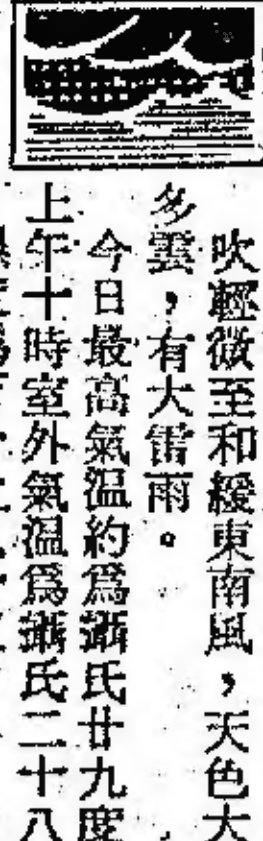 吹輕微至和緩東南風，天色大
多雲，有大雷雨。
今日最高氣温約爲攝氏廿九度
上午十時室外氣温爲攝氏二十八